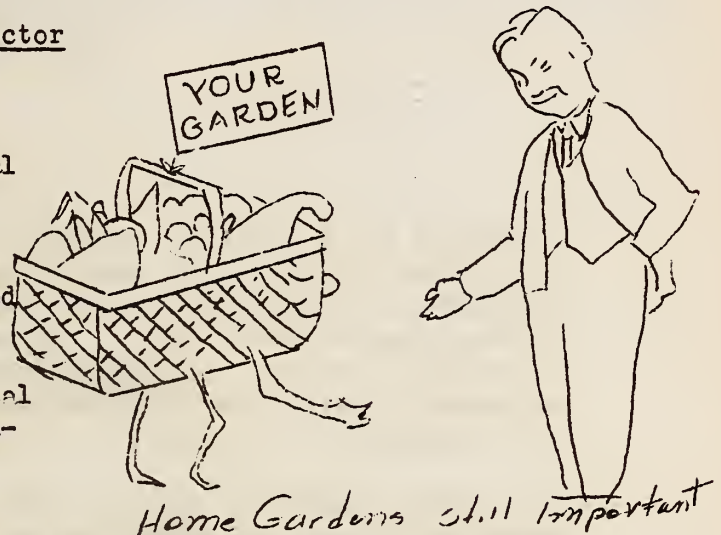 ctor
YOUR
GARDEN
al
d
al
-
Home Gardens still Important